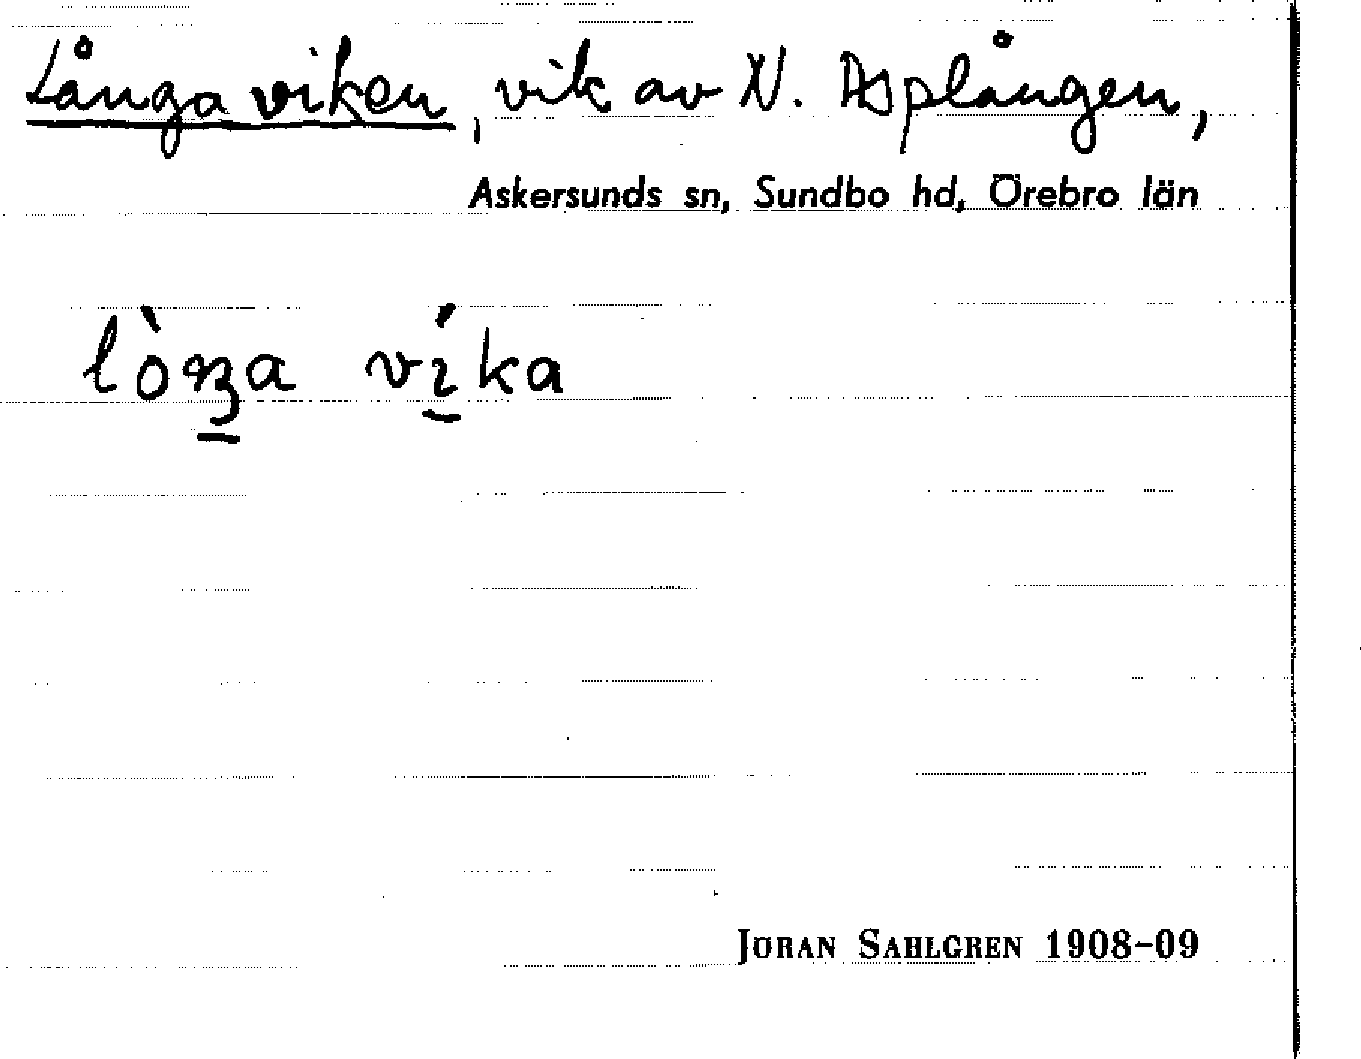 Långa viken, vik av N. Asplången,
Askersunds sn, Sundbo hd, Örebro län
lòŋa víka
JÖRAN SAHLGREN 1908-09